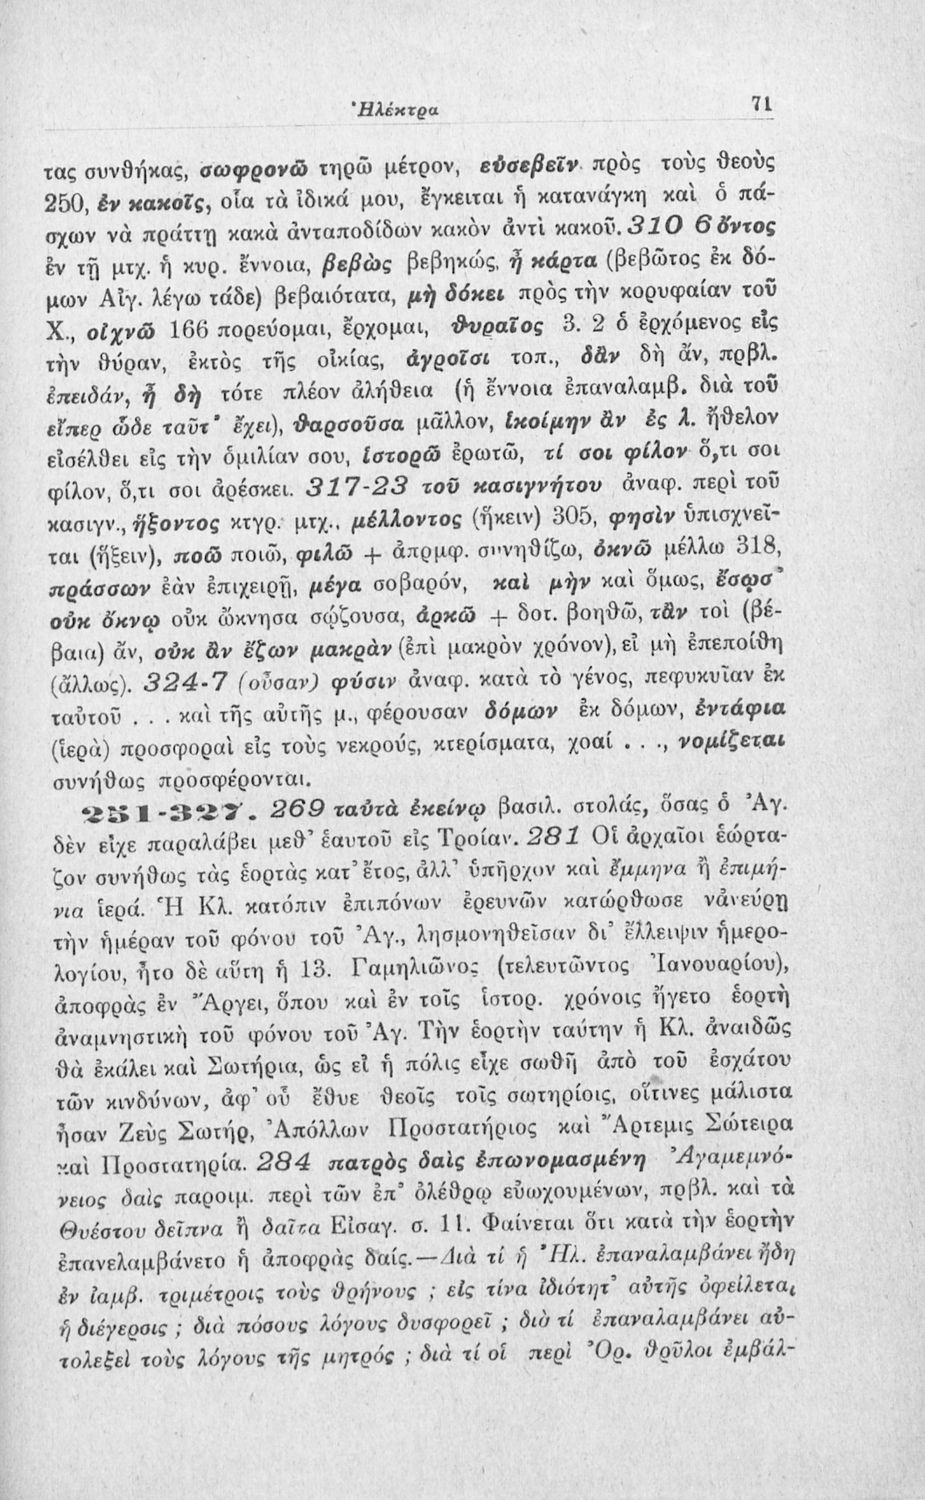 Ἠλέκτρα 71
τας συνθήκας, σωφρονῶ τηρῶ μέτρον, εὐσεβεῖν πρὸς τοὺς θεοὺς
250, ἐν κακοῖς, οἷα τὰ ἰδικά μου, ἔγκειται ἡ κατανάγκη καὶ ὁ πά-
σχων νὰ πράττῃ κακὰ ἀνταποδίδων κακὸν ἀντὶ κακοῦ. 310 6 ὄντος
ἐν τῇ μτχ. ἡ κυρ. ἔννοια, βεβὼς βεβηκώς, ἦ κάρτα (βεβῶτος ἐκ δό-
μων Αἰγ. λέγω τάδε) βεβαιότατα, μὴ δόκει πρὸς τὴν κορυφαίαν τοῦ
Χ., οἰχνῶ 166 πορεύομαι, ἔρχομαι, θυραῖος 3. 2 ὁ ἐρχόμενος εἰς
τὴν θύραν, ἐκτὸς τῆς οἰκίας, ἀγροῖσι τοπ., δἂν δὴ ἄν, πρβλ.
ἐπειδάν, ἦ δὴ τότε πλέον ἀλήθεια (ἡ ἔννοια ἐπαναλαμβ. διὰ τοῦ
εἴπερ ὧδε ταῦτ' ἔχει), θαρσοῦσα μᾶλλον, ἱκοίμην ἂν ἐς λ. ἤθελον
εἰσέλθει εἰς τὴν ὁμιλίαν σου, ἱστορῶ ἐρωτῶ, τί σοι φίλον ὅ,τι σοι
φίλον, ὅ,τι σοι ἀρέσκει. 317-23 τοῦ κασιγνήτου ἀναφ. περὶ τοῦ
κασιγν., ἥξοντος κτγρ. μτχ., μέλλοντος (ἥκειν) 305, φησὶν ὑπισχνεῖ-
ται (ἥξειν), ποῶ ποιῶ, φιλῶ + ἀπρμφ. συνηθίζω, ὀκνῶ μέλλω 318,
πράσσων ἐὰν ἐπιχειρῇ, μέγα σοβαρόν, καὶ μὴν καὶ ὅμως, ἔσῳσ'
οὐκ ὄκνῳ οὐκ ὤκνησα σῴζουσα, ἀρκῶ + δοτ. βοηθῶ, τἂν τοὶ (βέ-
βαια) ἄν, οὐκ ἂν ἔζων μακρὰν (ἐπὶ μακρὸν χρόνον), εἰ μὴ ἐπεποίθη
(ἄλλως). 324-7 (οὖσαν) φύσιν ἀναφ. κατὰ τὸ γένος, πεφυκυῖαν ἐκ
ταὐτοῦ . . . καὶ τῆς αὐτῆς μ., φέρουσαν δόμων ἐκ δόμων, ἐντάφια
(ἱερὰ) προσφοραὶ εἰς τοὺς νεκρούς, κτερίσματα, χοαί . . ., νομίζεται
συνήθως προσφέρονται.
251-327. 269 ταὐτὰ ἐκείνῳ βασιλ. στολάς, ὅσας ὁ Ἀγ.
δὲν εἶχε παραλάβει μεθ' ἑαυτοῦ εἰς Τροίαν. 281 Οἱ ἀρχαῖοι ἑώρτα-
ζον συνήθως τὰς ἑορτὰς κατ' ἔτος, ἀλλ' ὑπῆρχον καὶ ἔμμηνα ἢ ἐπιμή-
νια ἱερά. Ἡ Κλ. κατόπιν ἐπιπόνων ἐρευνῶν κατώρθωσε νἀνεύρῃ
τὴν ἡμέραν τοῦ φόνου τοῦ Ἀγ., λησμονηθεῖσαν δι' ἔλλειψιν ἡμερο-
λογίου, ἦτο δὲ αὕτη ἡ 13. Γαμηλιῶνος (τελευτῶντος Ἰανουαρίου),
ἀποφρὰς ἐν Ἄργει, ὅπου καὶ ἐν τοῖς ἱστορ. χρόνοις ἤγετο ἑορτὴ
ἀναμνηστικὴ τοῦ φόνου τοῦ Ἀγ. Τὴν ἑορτὴν ταύτην ἡ Κλ. ἀναιδῶς
θὰ ἐκάλει καὶ Σωτήρια, ὡς εἰ ἡ πόλις εἶχε σωθῆ ἀπὸ τοῦ ἐσχάτου
τῶν κινδύνων, ἀφ' οὗ ἔθυε θεοῖς τοῖς σωτηρίοις, οἵτινες μάλιστα
ἦσαν Ζεὺς Σωτήρ, Ἀπόλλων Προστατήριος καὶ Ἄρτεμις Σώτειρα
καὶ Προστατηρία. 284 πατρὸς δαὶς ἐπωνομασμένη Ἀγαμεμνό-
νειος δαὶς παροιμ. περὶ τῶν ἐπ' ὀλέθρῳ εὐωχουμένων, πρβλ. καὶ τὰ
Θυέστου δεῖπνα ἢ δαῖτα Εἰσαγ. σ. 11. Φαίνεται ὅτι κατὰ τὴν ἑορτὴν
ἐπανελαμβάνετο ἡ ἀποφρὰς δαίς.—Διὰ τί ἡ Ἠλ. ἐπαναλαμβάνει ἤδη
ἐν ἰαμβ. τριμέτροις τοὺς θρήνους ; εἰς τίνα ἰδιότητ' αὐτῆς ὀφείλεται
ἡ διέγερσις ; διὰ πόσους λόγους δυσφορεῖ ; διὰ τί ἐπαναλαμβάνει αὐ-
τολεξεὶ τοὺς λόγους τῆς μητρός ; διὰ τί οἱ περὶ Ὀρ. θρῦλοι ἐμβάλ-